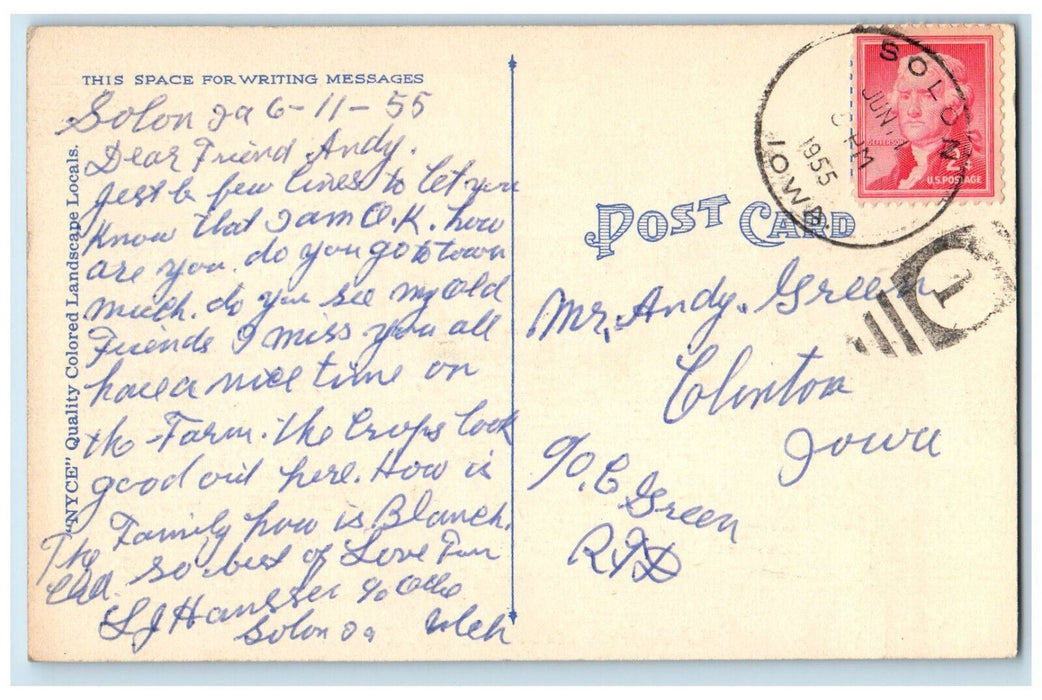 THIS SPACE FOR WRITING MESSAGES
Solon Ia 6-11-55
Dear Friend Andy.
Jest a few lines to let you
know that I am O.K. how
are you. do you go to town
much. do you see my old
Friends I miss you all
have a nice time on
the Farm. the Crops look
good out here. How is
Family how is Blanch.
so best of Love
L J
Solon Ia
"NYCE" Quality Colored Landscape Locals.
POST CARD
SOLON
JUN
PM
1955
IOWA
JEFFERSON
2¢
U.S. POSTAGE
1
Mr. Andy. Green
Clinton
Iowa
c/o. C Green
RFD